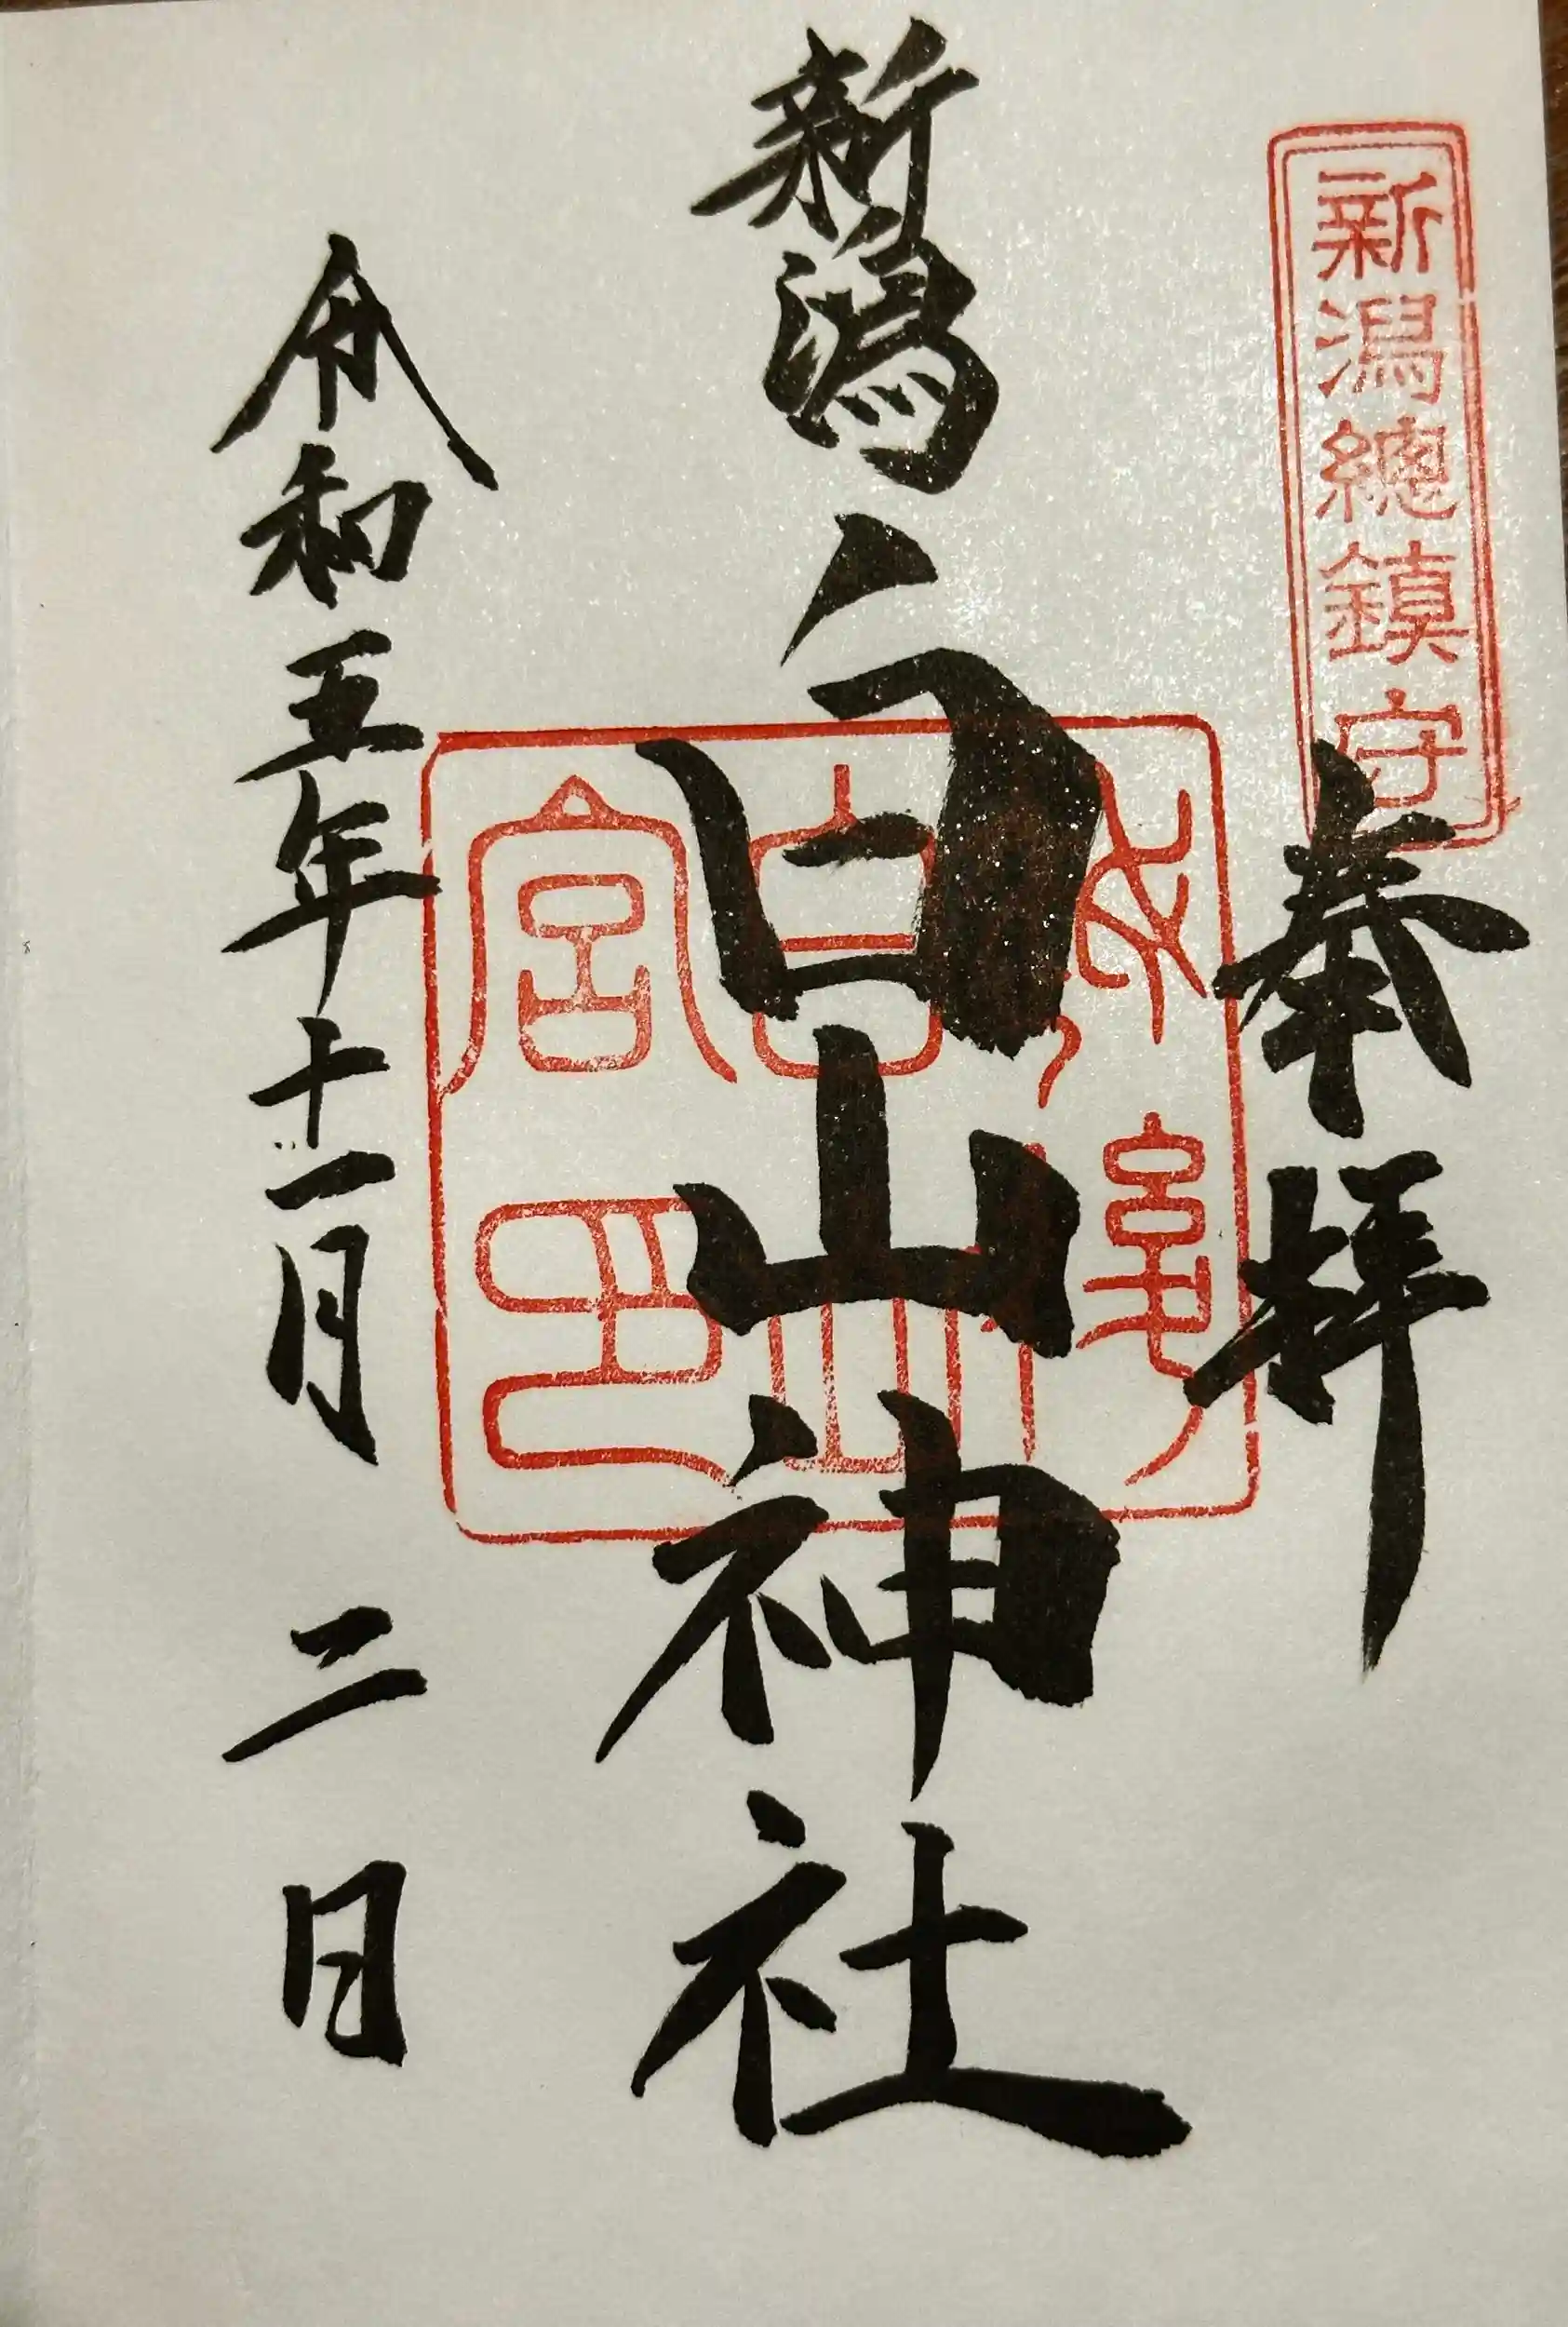 新潟總鎮守
奉拝
新潟白山神社
令和五年十一月二日
白山
宮印